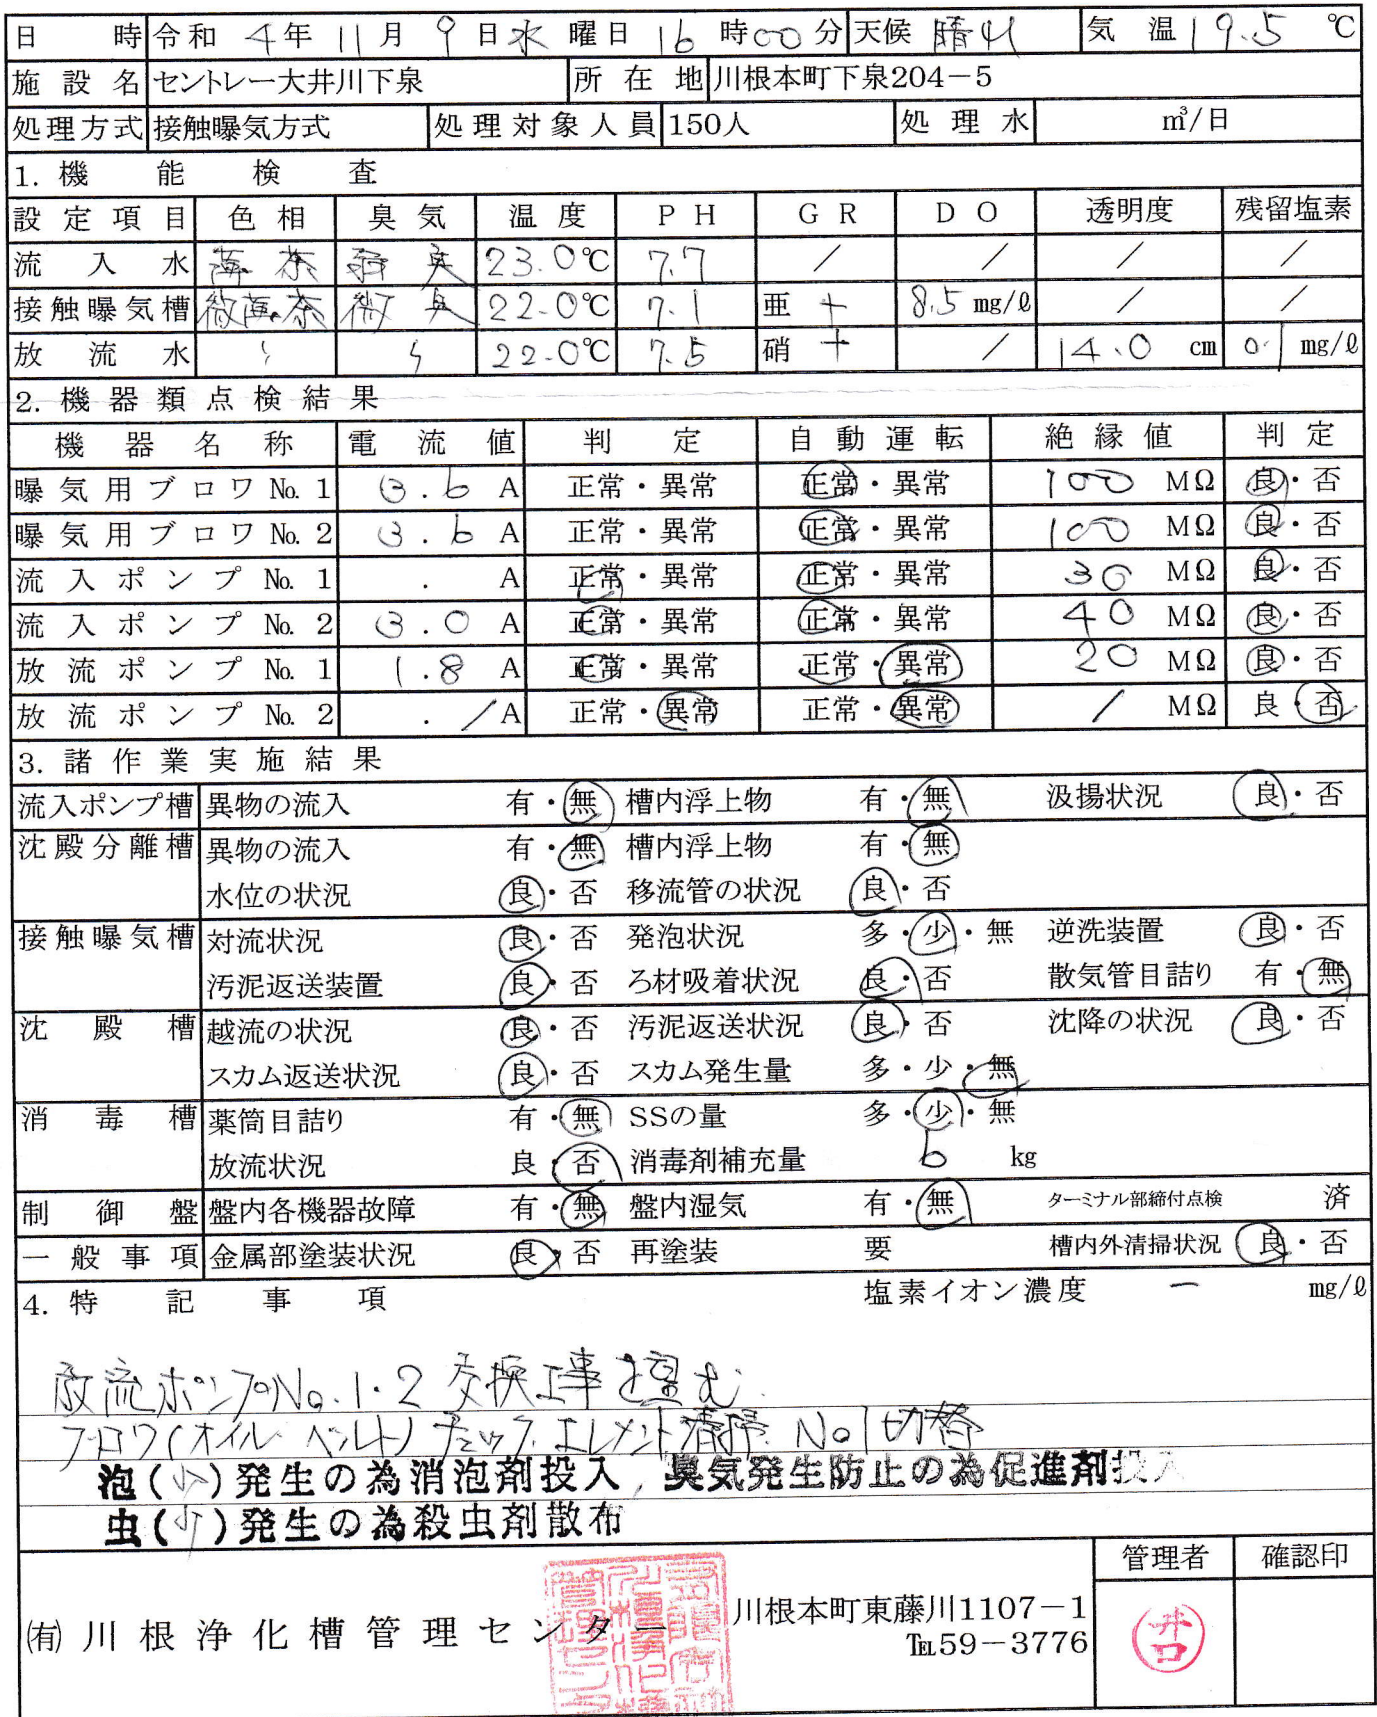 日 時 令和 4年 11月 9日 水 曜日 16 時00分 天候 晴れ 気 温 19.5 ℃
施 設 名 セントレー大井川下泉 所 在 地 川根本町下泉204－5
処理方式 接触曝気方式 処理対象人員 150人 処 理 水 ㎥/日
1. 機 能 検 査
設 定 項 目 色 相 臭 気 温 度 P H G R D O 透明度 残留塩素
流 入 水 薄茶 弱臭 23.0℃ 7.7 / / / /
接触曝気槽 微薄茶 微臭 22.0℃ 7.1 亜 + 8.5 mg/ℓ / /
放 流 水 〃 〃 22.0℃ 7.5 硝 + / 14.0 cm 0.1 mg/ℓ
2. 機 器 類 点 検 結 果
機 器 名 称 電 流 値 判 定 自 動 運 転 絶 縁 値 判 定
曝気用ブロワ №1 3.6 A 正常・異常 正常・異常 100 MΩ 良・否
曝気用ブロワ №2 3.6 A 正常・異常 正常・異常 100 MΩ 良・否
流入ポンプ №1 . A 正常・異常 正常・異常 30 MΩ 良・否
流入ポンプ №2 3.0 A 正常・異常 正常・異常 40 MΩ 良・否
放流ポンプ №1 1.8 A 正常・異常 正常・異常 20 MΩ 良・否
放流ポンプ №2 . / A 正常・異常 正常・異常 / MΩ 良・否
3. 諸 作 業 実 施 結 果
流入ポンプ槽 異物の流入 有・無 槽内浮上物 有・無 汲揚状況 良・否
沈殿分離槽 異物の流入 有・無 槽内浮上物 有・無
水位の状況 良・否 移流管の状況 良・否
接触曝気槽 対流状況 良・否 発泡状況 多・少・無 逆洗装置 良・否
汚泥返送装置 良・否 ろ材吸着状況 良・否 散気管目詰り 有・無
沈 殿 槽 越流の状況 良・否 汚泥返送状況 良・否 沈降の状況 良・否
スカム返送状況 良・否 スカム発生量 多・少・無
消 毒 槽 薬筒目詰り 有・無 SSの量 多・少・無
放流状況 良・否 消毒剤補充量 6 kg
制 御 盤 盤内各機器故障 有・無 盤内湿気 有・無 ターミナル部締付点検 済
一 般 事 項 金属部塗装状況 良・否 再塗装 要 槽内外清掃状況 良・否
4. 特 記 事 項 塩素イオン濃度 ー mg/ℓ
放流ポンプNo.1・2 交換工事を望む.
ブロワ(オイル ベルト)チェック. エレメント清掃. No1切替
泡(少)発生の為消泡剤投入 臭気発生防止の為促進剤投入
虫(少)発生の為殺虫剤散布
管理者 確認印
㈲川根浄化槽管理センター 川根本町東藤川1107－1
℡59－3776
井口